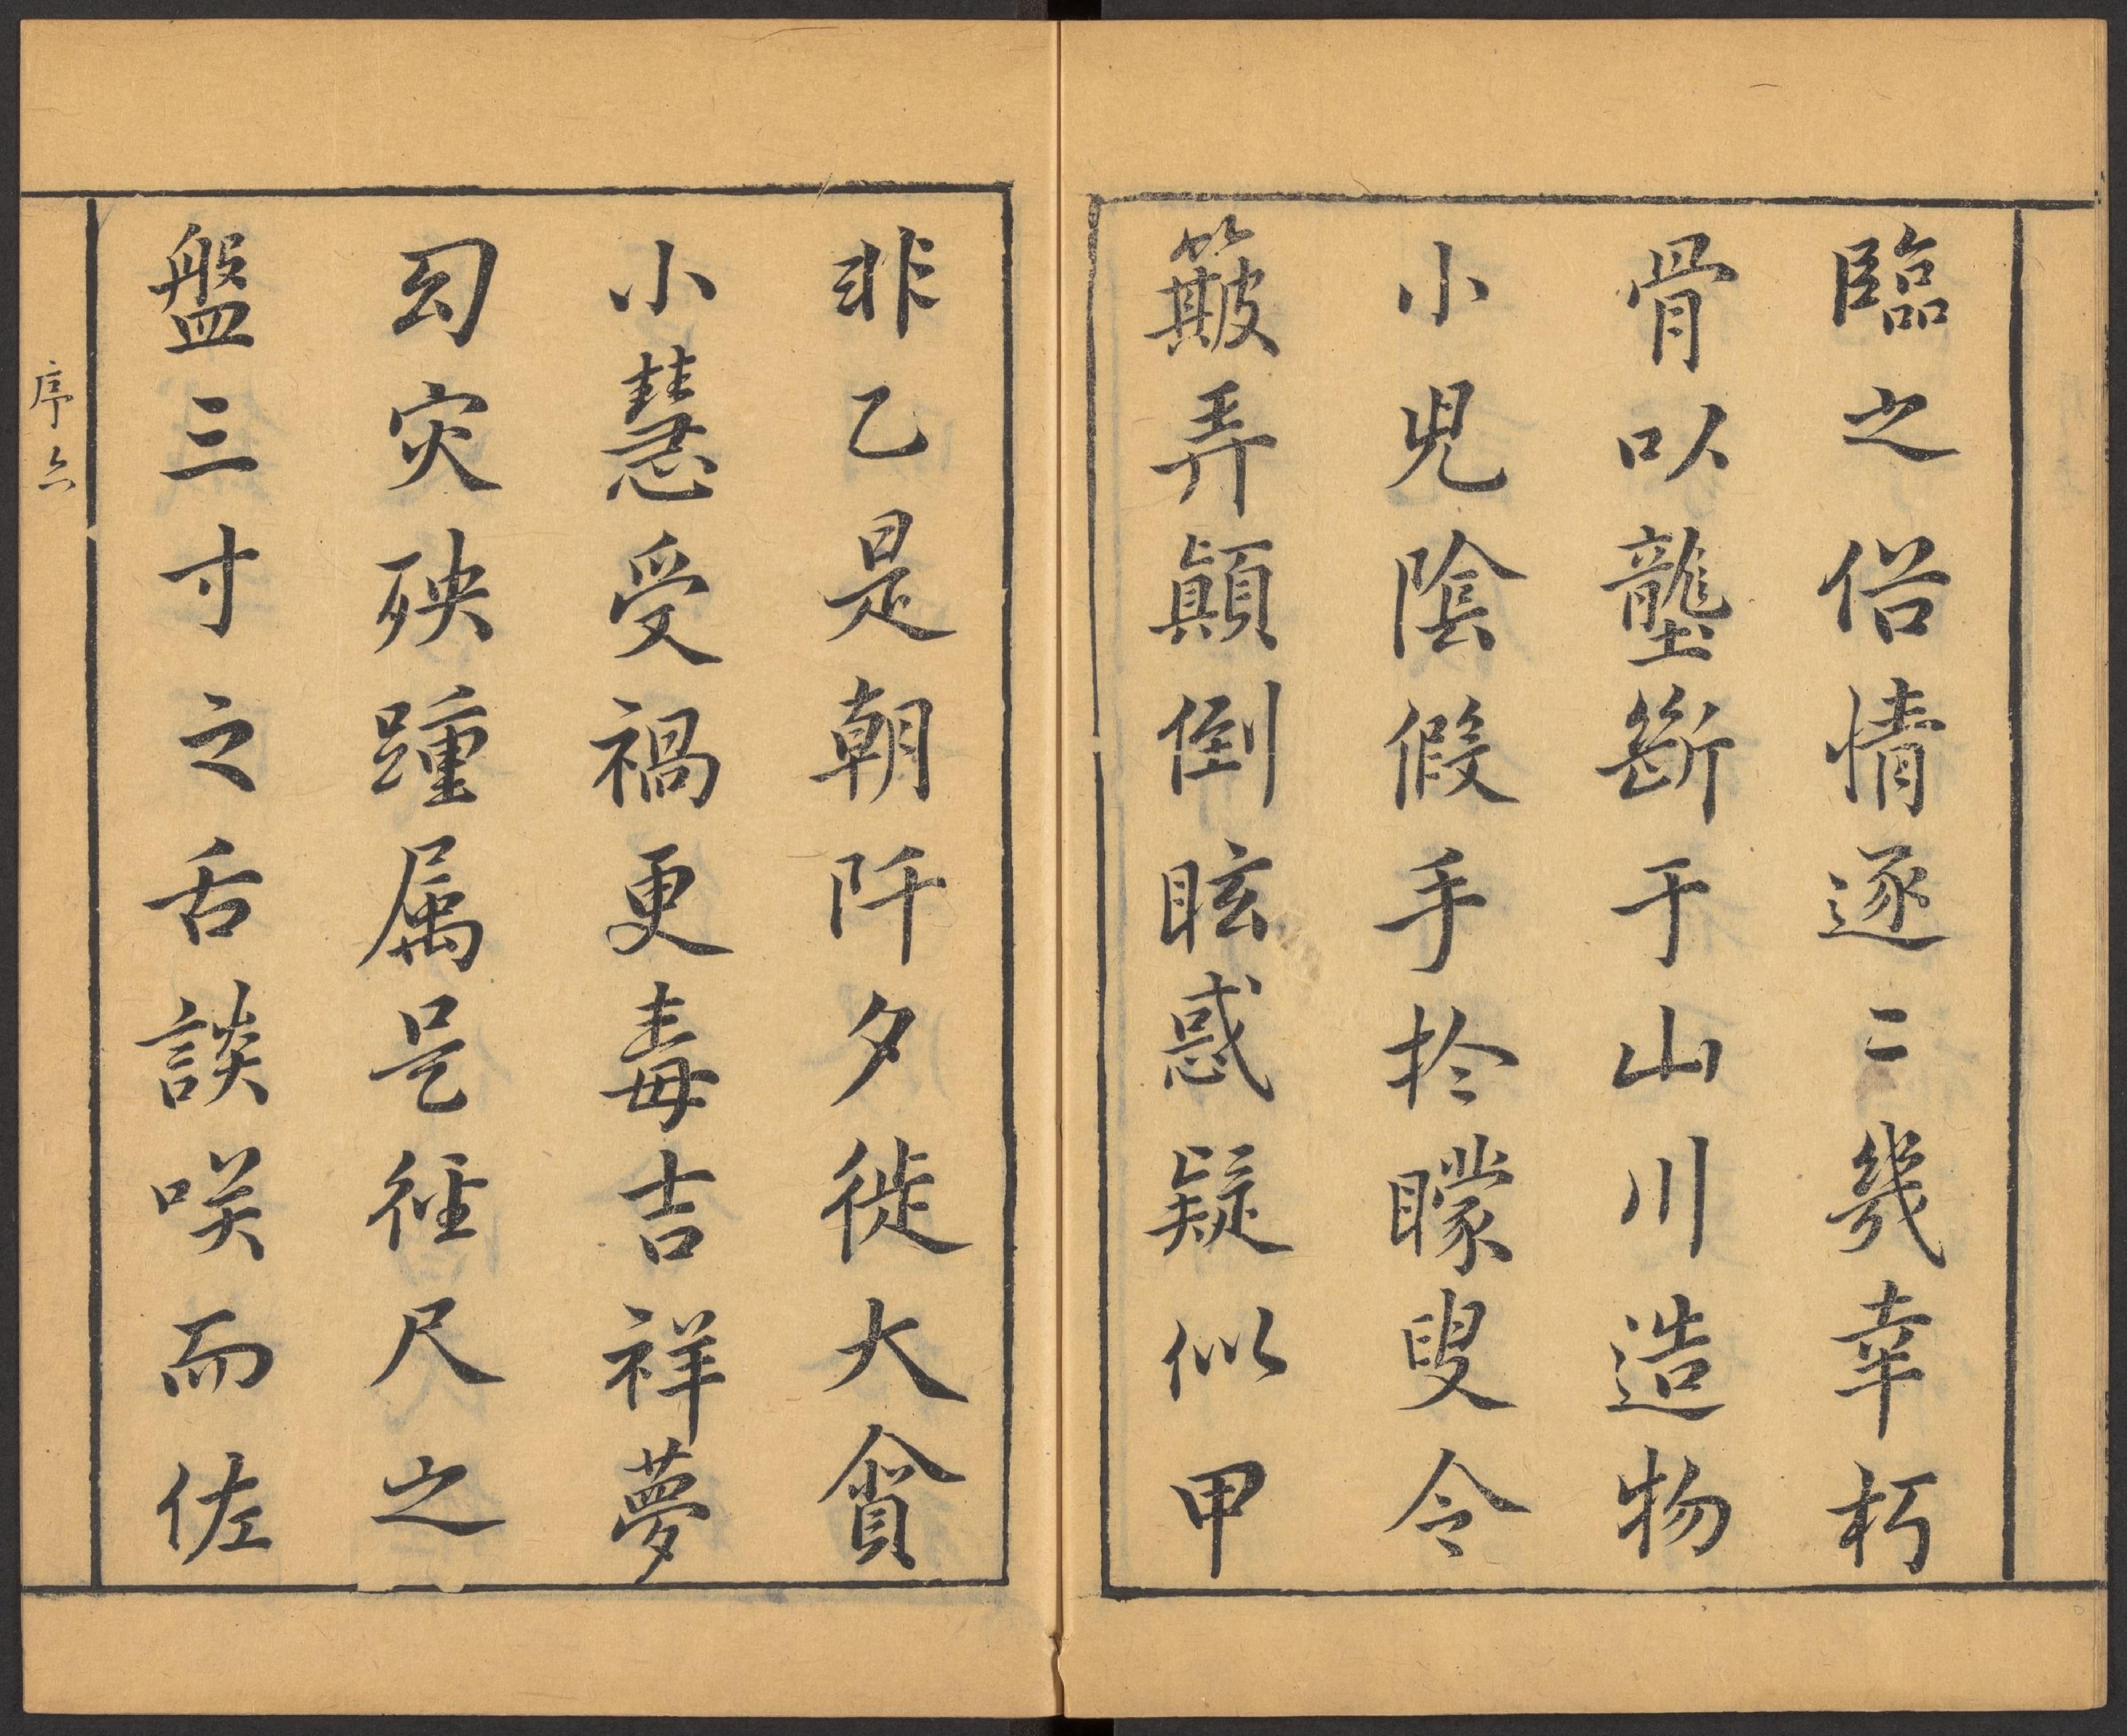 臨之俗情逐〻幾幸朽
骨以壟斷于山川造物
小兒陰假手扵矇叟令
簸弄顛倒眩惑疑似甲
非乙是朝阡夕徙大貪
小慧受禍更毒吉祥夢
幻灾殃踵属是徑尺之
盤三寸之舌談咲而佐
序六